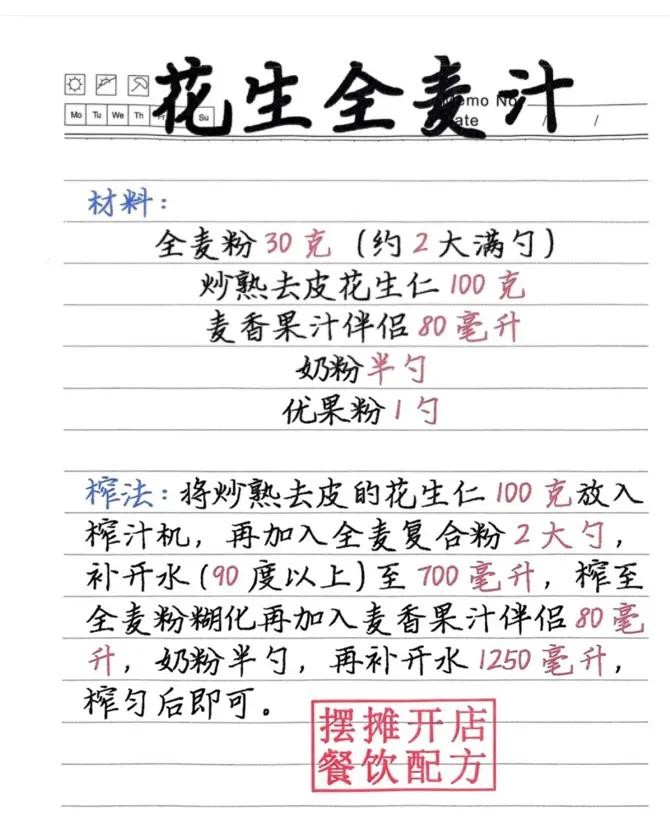 花生全麦汁
Memo No
Mo Tu We Th Fr Su
ate / /
材料：
全麦粉30克（约2大满勺）
炒熟去皮花生仁100克
麦香果汁伴侣80毫升
奶粉半勺
优果粉1勺
榨法：将炒熟去皮的花生仁100克放入
榨汁机，再加入全麦复合粉2大勺，
补开水(90度以上)至700毫升，榨至
全麦粉糊化再加入麦香果汁伴侣80毫
升，奶粉半勺，再补开水1250毫升，
榨匀后即可。
摆摊开店
餐饮配方